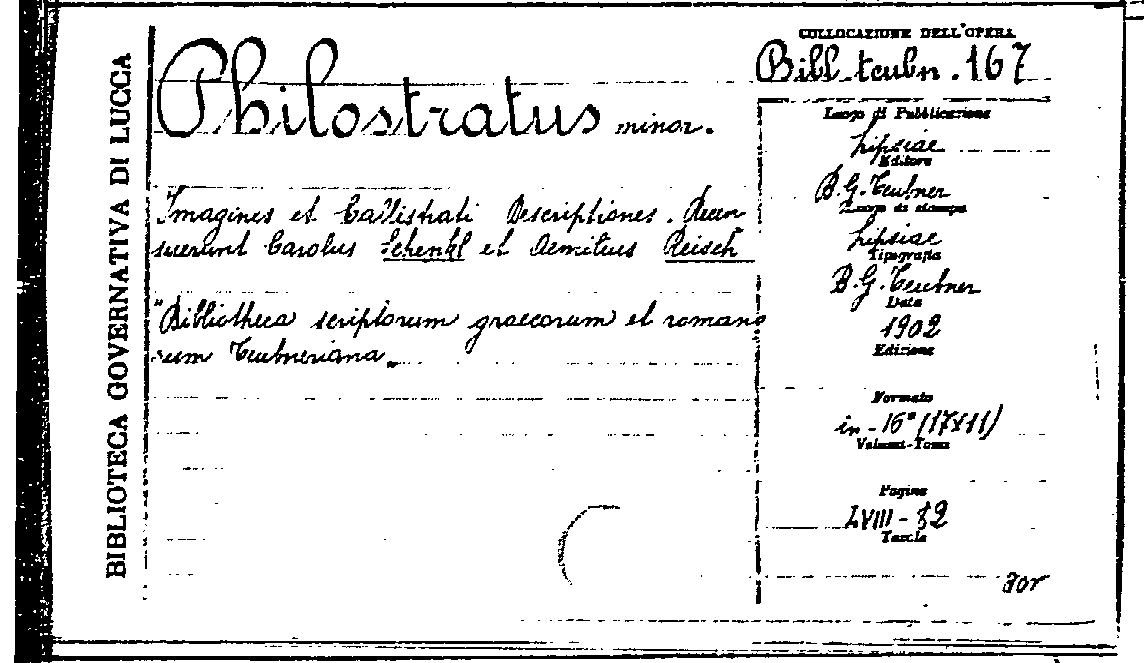 BIBLIOTECA GOVERNATIVA DI LUCCA
Philostratus minor.
Imagines et Callistrati Descriptiones. Recen
suerunt Carolus Schenkl et Aemilius Reisch
"Bibliotheca scriptorum graecorum et romano
rum Teubneriana„
COLLOCAZIONE DELL'OPERA
Bibl. teubn. 167
Luogo di Pubblicazione
Lipsiae
Editore
B.G. Teubner
Luogo di stampa
Lipsiae
Tipografia
B.G. Teubner
Data
1902
Edizione
Formato
in-16° (17x11)
Volumi-Tomo
Pagine
LVIII-82
Tavole